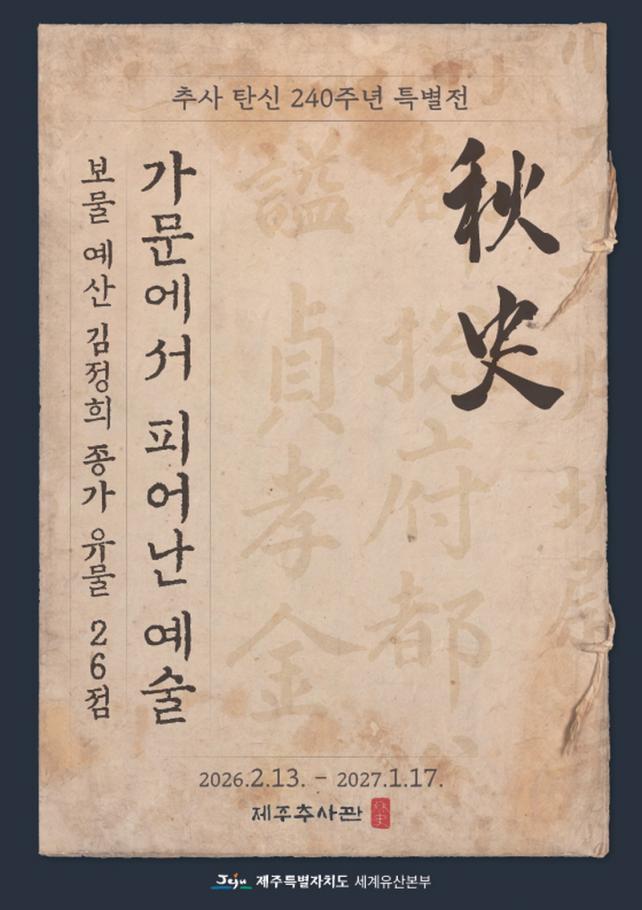 추사 탄신 240주년 특별전
秋史
가문에서 피어난 예술
보물 예산 김정희 종가 유물 26점
謚 貞孝金
都 摠府都
2026.2.13. - 2027.1.17.
제주추사관
秋史
Jeju 제주특별자치도 세계유산본부